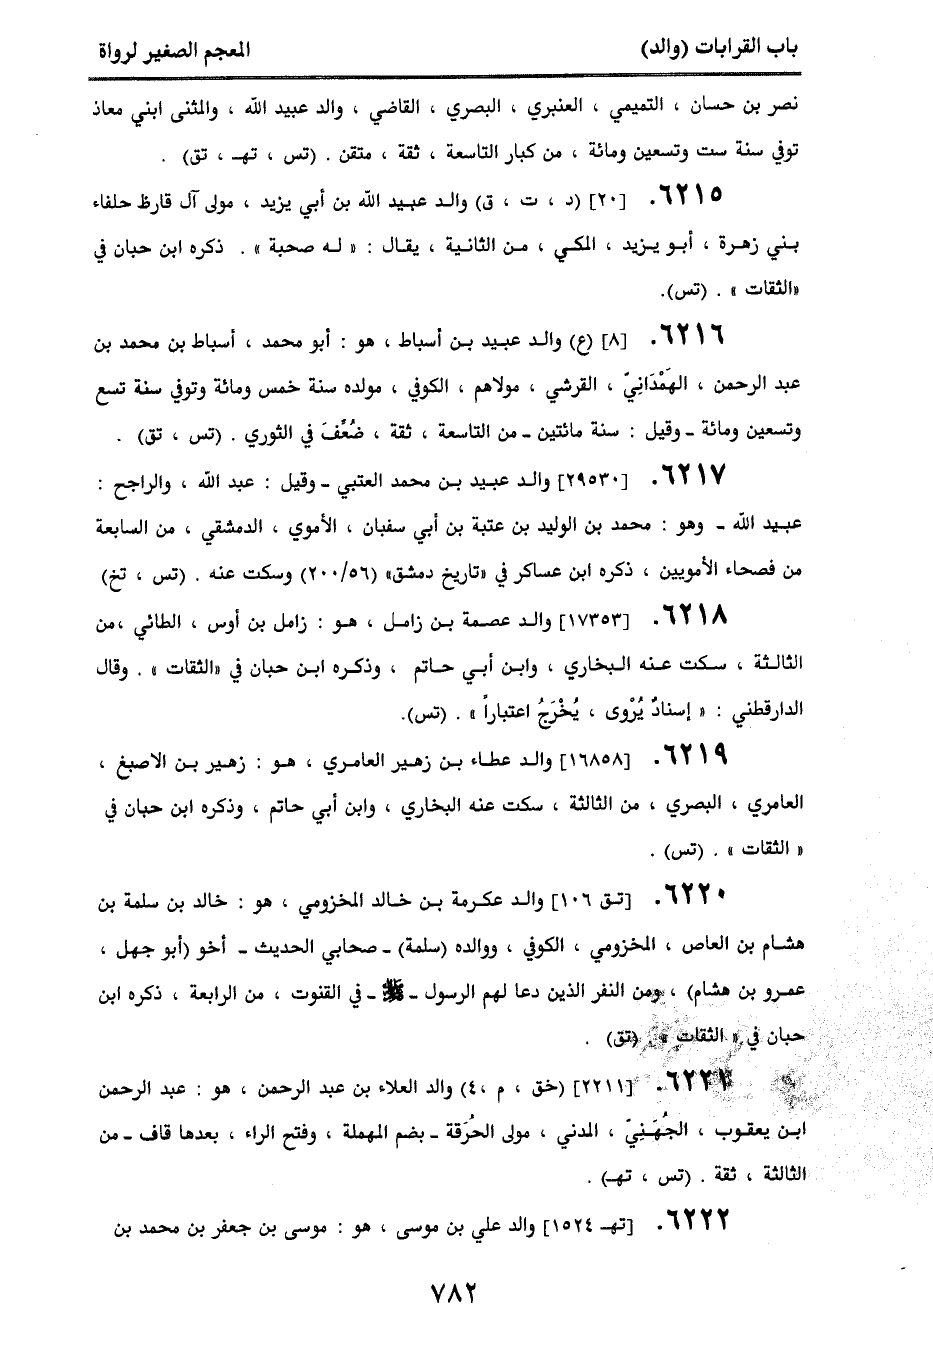 باب القرابات (والد)
المعجم الصغير لرواة
نصر بن حسان ، التميمي ، العنبري ، البصري ، القاضي ، والد عبيد الله ، والمثنى ابني معاذ
توفي سنة ست وتسعين ومائة ، من كبار التاسعة ، ثقة ، متقن . (تس ، تهـ ، تق) .
٦٢١٥. [٢٠] (د ، ت ، ق) والد عبيد الله بن أبي يزيد ، مولى آل قارظ حلفاء
بني زهرة ، أبو يزيد ، المكي ، من الثانية ، يقال : « له صحبة » . ذكره ابن حبان في
«الثقات » . (تس).
٦٢١٦. [٨] (ع) والد عبيد بن أسباط ، هو : أبو محمد ، أسباط بن محمد بن
عبد الرحمن ، الهَمْدَانِيّ ، القرشي ، مولاهم ، الكوفي ، مولده سنة خمس ومائة وتوفي سنة تسع
وتسعين ومائة ـ وقيل : سنة مائتين ـ من التاسعة ، ثقة ، ضُعِّفَ في الثوري . (تس ، تق) .
٦٢١٧. [٢٩٥٣٠] والد عبيد بن محمد العتبي ـ وقيل : عبد الله ، والراجح :
عبيد الله ـ وهو : محمد بن الوليد بن عتبة بن أبي سفيان ، الأموي ، الدمشقي ، من السابعة
من فصحاء الأمويين ، ذكره ابن عساكر في «تاريخ دمشق» (٢٠٠/٥٦) وسكت عنه . (تس ، تخ)
٦٢١٨. [١٧٣٥٣] والد عصمة بن زامل ، هو : زامل بن أوس ، الطائي ،من
الثالثة ، سكت عنه البخاري ، وابن أبي حاتم ، وذكره ابن حبان في «الثقات » . وقال
الدارقطني : « إسنادٌ يُرْوى ، يُخْرَجُ اعتباراً » . (تس).
٦٢١٩. [١٦٨٥٨] والد عطاء بن زهير العامري ، هو : زهير بن الاصبغ ،
العامري ، البصري ، من الثالثة ، سكت عنه البخاري ، وابن أبي حاتم ، وذكره ابن حبان في
« الثقات » . (تس) .
٦٢٢٠. [تق ١٠٦] والد عكرمة بن خالد المخزومي ، هو : خالد بن سلمة بن
هشام بن العاص ، المخزومي ، الكوفي ، ووالده (سلمة) ـ صحابي الحديث ـ أخو (أبو جهل ،
عمرو بن هشام) ، ومن النفر الذين دعا لهم الرسول ـ ﷺ ـ في القنوت ، من الرابعة ، ذكره ابن
حبان في « الثقات » . (تق) .
٦٢٢١. [٢٢١١] (خق ، م ،٤) والد العلاء بن عبد الرحمن ، هو : عبد الرحمن
ابن يعقوب ، الجُهَنِيّ ، المدني ، مولى الحُرَقة ـ بضم المهملة ، وفتح الراء ، بعدها قاف ـ من
الثالثة ، ثقة . (تس ، تهـ) .
٦٢٢٢. [تهـ ١٥٢٤] والد علي بن موسى ، هو : موسى بن جعفر بن محمد بن
٧٨٢